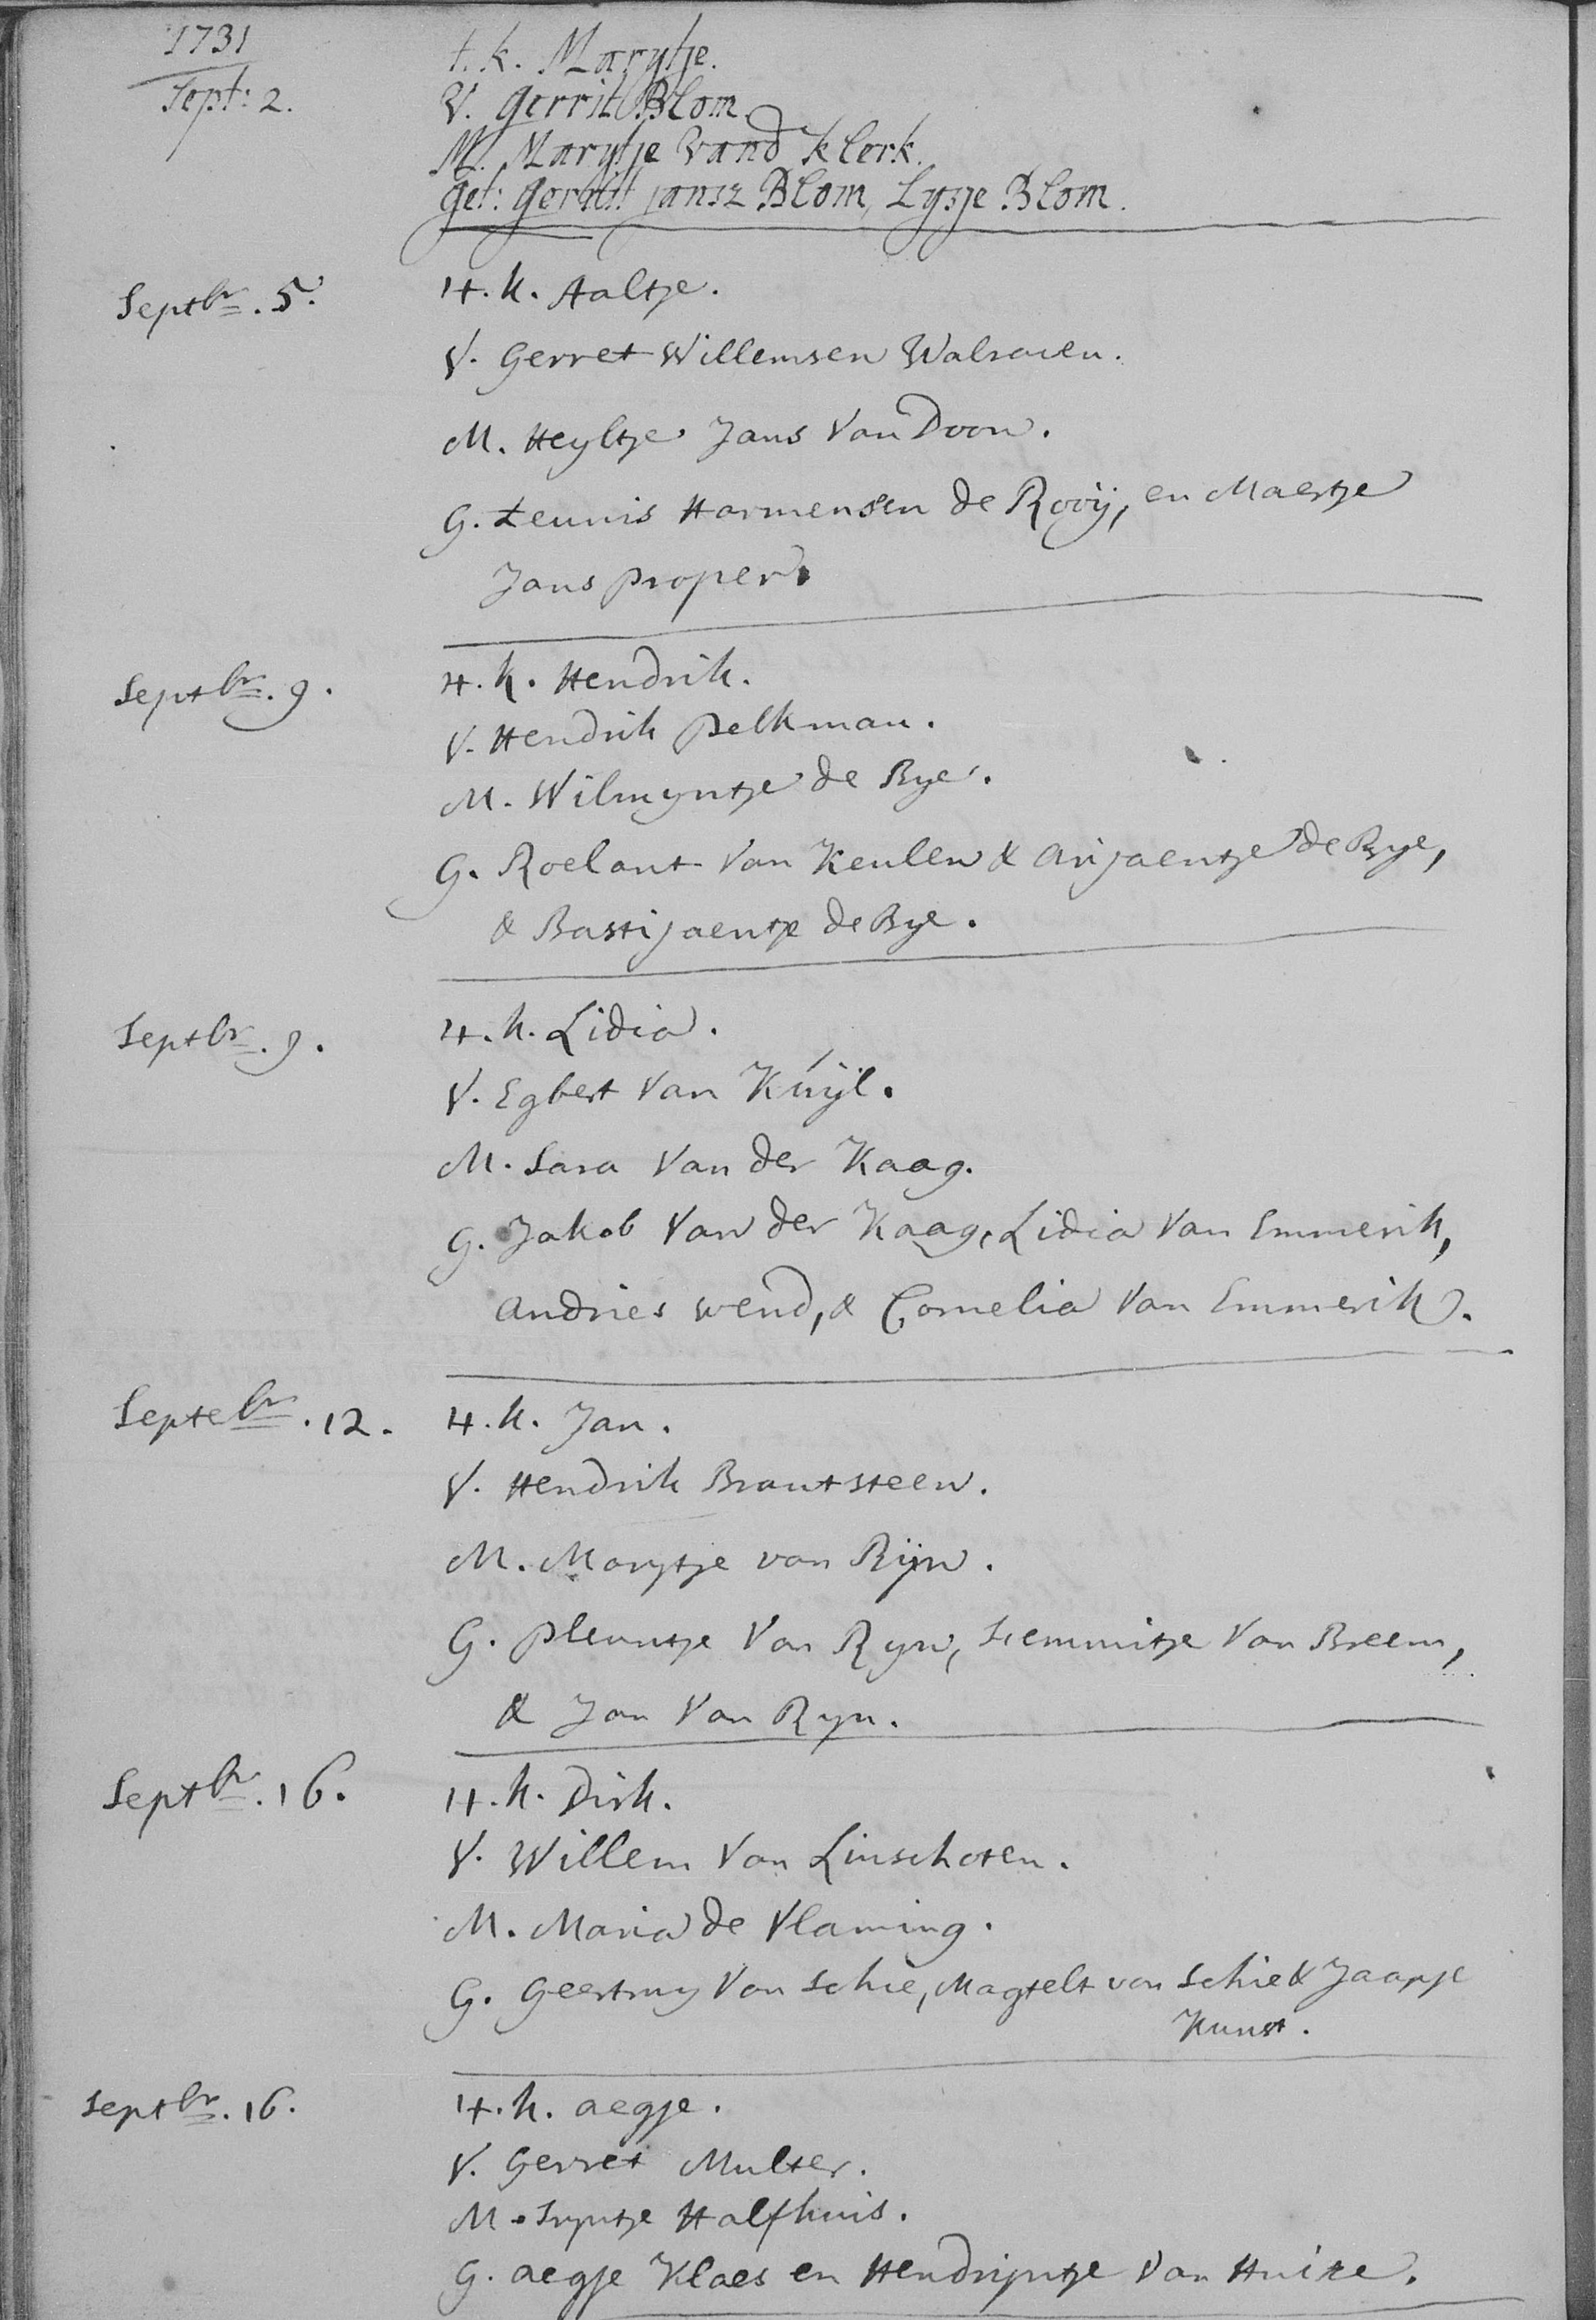 1731
Sept: 2.
t. k. Marytje.
V. gerrit Blom.
M. Marytje vand klerk.
get: gerritt jansz Blom, Lysje Blom.
Septbr. 5.
't. k. Aaltje.
V. Gerret Willemsen Walraven.
M. Heyltje Jans Van Doorn.
G. Teunis Harmensen de Rooÿ, en Maertje
Jans proper.
Septbr. 9.
't. k. Hendrik.
V. Hendrik pelkman.
M. Wilmyntje de Bye.
G. Roelant Van Keulen & arijaentje de Bye,
& Bastijaentje de Bye.
Septbr. 9.
't. k. Lidia.
V. Egbert Van Kuÿl.
M. Sara Van der Kaag.
G. Jakob Van der Kaag, Lidia Van Emmerik,
andries wend, & Cornelia Van Emmerik.
Septebr. 12.
't. k. Jan.
V. Hendrik Brantsteen.
M. Marytje van Rÿn.
G. pleuntje Van Ryn, Jemmitje Van Breem,
& Jan Van Ryn.
Septbr. 16.
't. k. Dirk.
V. Willem Van Linschoten.
M. Maria de Vlaming.
G. Geertruy Van Schie, Magtelt van Schie & Jaapje
Kunst.
Septbr. 16.
't. k. aegje.
V. Gerret Multer.
M. Tryntje Halfhuis.
G. aegje Klaes en Hendrijntje Van Huize.